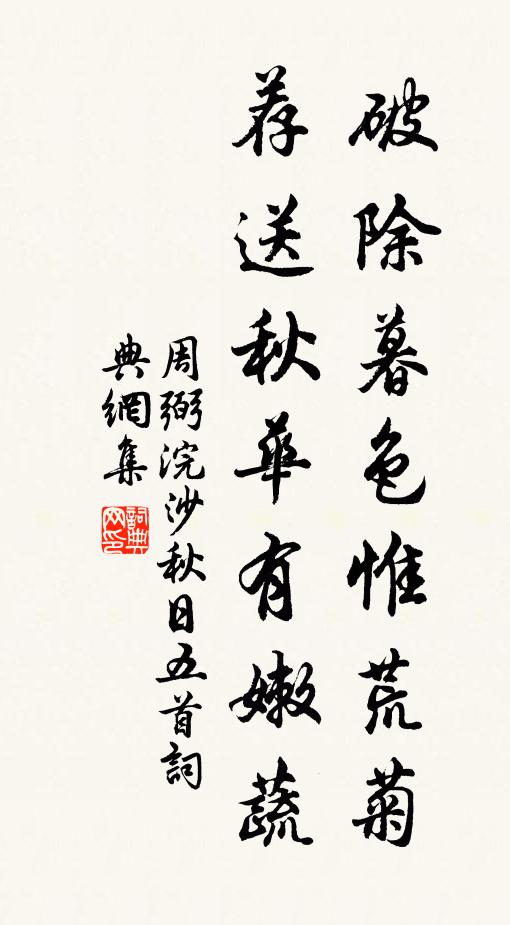 破除暮色惟荒菊
荐送秋華有嫩蔬
周弼浣沙秋日五首詞
典網集
詞典網印